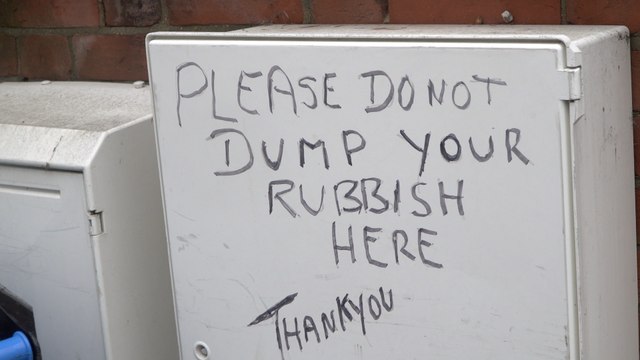 PLEASE DO NOT
DUMP YOUR
RUBBISH
HERE
THANKYOU